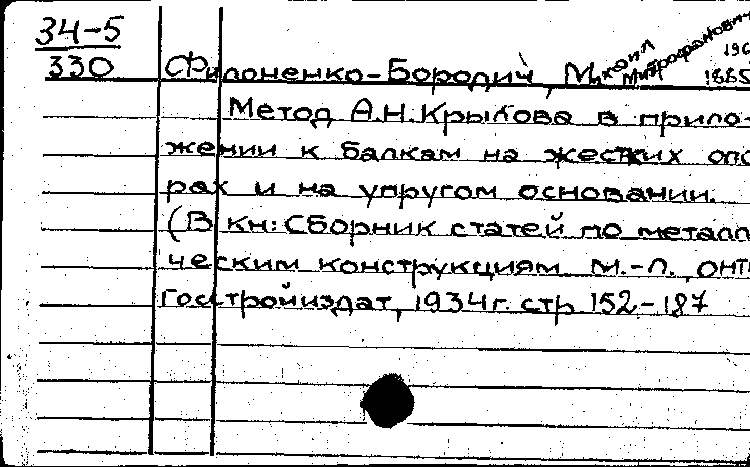 34-5
330
Филоненко-Бородич, Михаил
Митрофанович
196
1885
Метод А.Н.Крылова в прило-
жении к балкам на жестких опо
рах и на упругом основании.
(В кн: Сборник статей по металл
ческим конструкциям М.-Л. ОНТИ
Госстройиздат, 1934г. стр 152-187